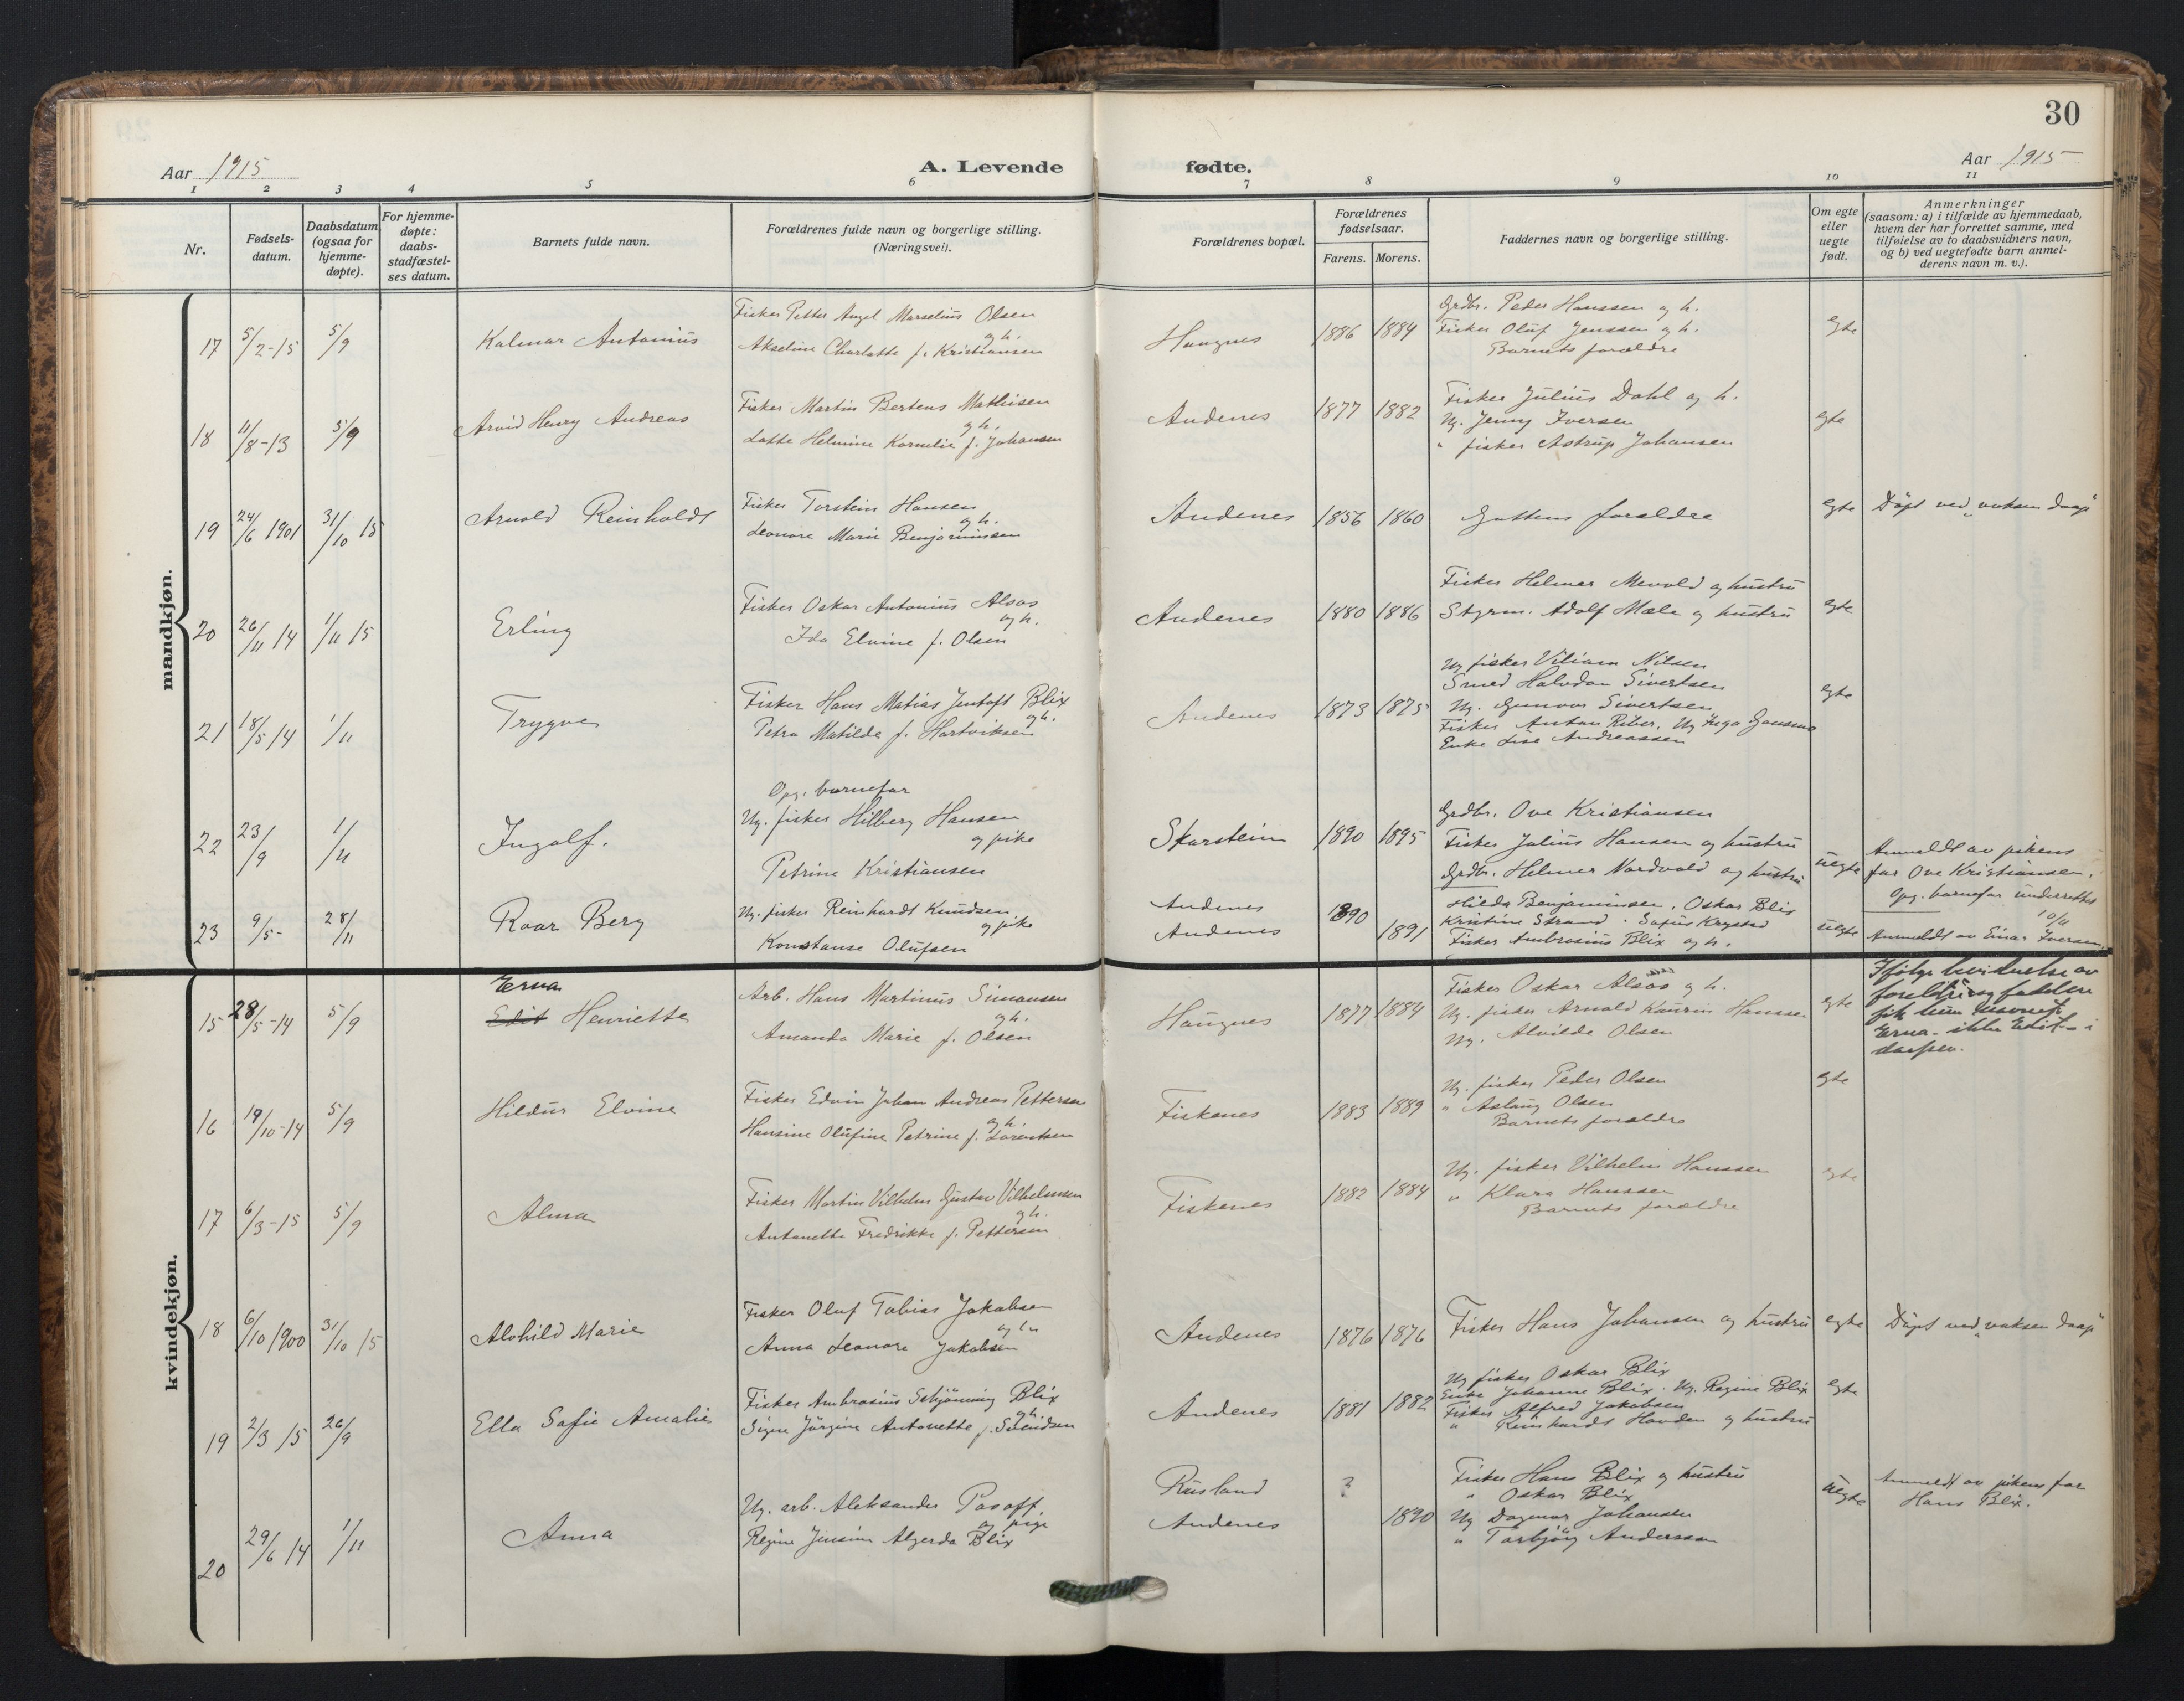 30
Aar 1915
A. Levende fødte.
Aar 1915
1 2 3 4 5 6 7 8 9 10 11
Nr.
Fødsels-
datum.
Daabsdatum
(ogsaa for
hjemme-
døpte).
For hjemme-
døpte:
daabs-
stadfæstel-
ses datum.
Barnets fulde navn.
Forældrenes fulde navn og borgerlige stilling.
(Næringsvei).
Forældrenes bopæl.
Forældrenes
fødselsaar.
Farens. Morens.
Faddernes navn og borgerlige stilling.
Om egte
eller
uegte
født.
Anmerkninger
(saasom: a) i tilfælde av hjemmedaab,
hvem der har forrettet samme, med
tilføielse av to daabsvidners navn,
og b) ved uegtefødte barn anmel-
derens navn m. v.).
mandkjøn.
17 5/2-15 5/9 Kalmar Antonius
Fisker Petter Angel Marselius Olsen
og h.
Akseline Charlotte f. Kristiansen
Haugnes 1886 1884
Grdbr. Peder Hanssen og h.
Fisker Oluf Jenssen og h.
Barnets forældre
egte
18 11/8-13 5/9 Arvid Henry Andreas
Fisker Martin Bertens Mathisen
og h.
Lotte Helmine Kornelie f. Johansen
Andenes 1877 1882
Fisker Julius Dahl og h.
Ug. Jenny Iversen
" fisker Astrup Johansen
egte
19 24/6 1901 31/10 15 Arnold Reinholdt
Fisker Torstein Hansen
og h.
Leonore Marie Benjaminsen
Andenes 1856 1860
Guttens forældre
egte
Döpt ved "voksen daap"
20 26/11 14 1/11 15 Erling
Fisker Oskar Antonius Alsos
og h.
Ida Elvine f. Olsen
Andenes 1880 1886
Fisker Helmer Mevold og hustru
Styrm. Adolf Mæle og hustru
egte
21 18/5 14 1/11 Trygve
Fisker Hans Matias Jentoft Blix
og h.
Petra Matilde f. Hartviksen
Andenes 1873 1875
Ug. fisker Viliam Nilsen
Smed Halvdan Sivertsen
Ug. Gunvor Sivertsen
Fisker Anton Riber, Ug Inga
Enke Lise Andreassen
egte
22 23/9 1/11 Ingolf.
Opg. barnefar
Ug. fisker Hilberg Hansen
og pike
Petrine Kristiansen
Skarstein 1890 1895
Grdbr. Ove Kristiansen
Fisker Julius Hansen og hustru
Grdbr. Helmer Nordvold og hustru
uegte
Anmeldt av pikens
far Ove Kristiansen.
Opg. barnefar underrettet
10/11
23 9/5- 28/11 Roar Berg
Ug. fisker Reinhardt Knudsen
og pike
Konstanse Olufsen
Andenes 1890
Andenes 1891
Hilda Benjaminsen. Oskar Blix
Kristine Strand. Sofus Krystad
Fisker Ambrosius Blix og h.
uegte
Anmeldt av Einar Iversen.
kvindekjøn.
15 28/5-14 5/9
Erna
Edit Henriette
Arb. Hans Martinus Simonsen
og h.
Amanda Marie f. Olsen
Haugnes 1877 1884
Fisker Oskar Alsos og h.
Ug. fisker Arnold Kaurin Hanssen
Ug. Alvilde Olsen
egte
Ifölge bevidnelse av
foreldre og faddere
fik hun navnet
Erna - ikke Edit - i
daapen.
16 19/10-14 5/9 Hildur Elvine
Fisker Edvin Johan Andreas Pettersen
og h.
Hansine Olufine Petrine f. Lorentsen
Fiskenes 1883 1889
Ug. fisker Peder Olsen
" Aslaug Olsen
Barnets forældre
egte
17 6/3-15 5/9 Alma
Fisker Martin Vilhelm Gustav Vilhelmsen
og h.
Antonette Fredrikke f. Pettersen
Fiskenes 1882 1884
Ug. fisker Vilhelm Hanssen
" Klara Hanssen
Barnets forældre
egte
18 6/10 1900 31/10 15 Alvhild Marie
Fisker Oluf Tobias Jakobsen
og h
Anna Leonore Jakobsen
Andenes 1876 1876
Fisker Hans Johansen og hustru
egte
Döpt ved "voksen daap"
19 2/3 15 26/9 Ella Sofie Amalie
Fisker Ambrosius Schjönning Blix
og h.
Signe Jörgine Antonette f. Svendsen
Andenes 1881 1882
Ug fisker Oskar Blix
Enke Johanne Blix. Ug. Regine Blix
Fisker Alfred Jakobsen
" Reinhardt Havdan og hustru
egte
20 29/6 14 1/11 Anna
Ug. arb. Aleksander Pasoff
og pige
Regine Jensine Algerda Blix
Rusland ?
Andenes 1890
Fisker Hans Blix og hustru
" Oskar Blix
Ug Dagmar Johansen
" Torbjörg Anderssen
uegte
Anmeldt av pikens far
Hans Blix.